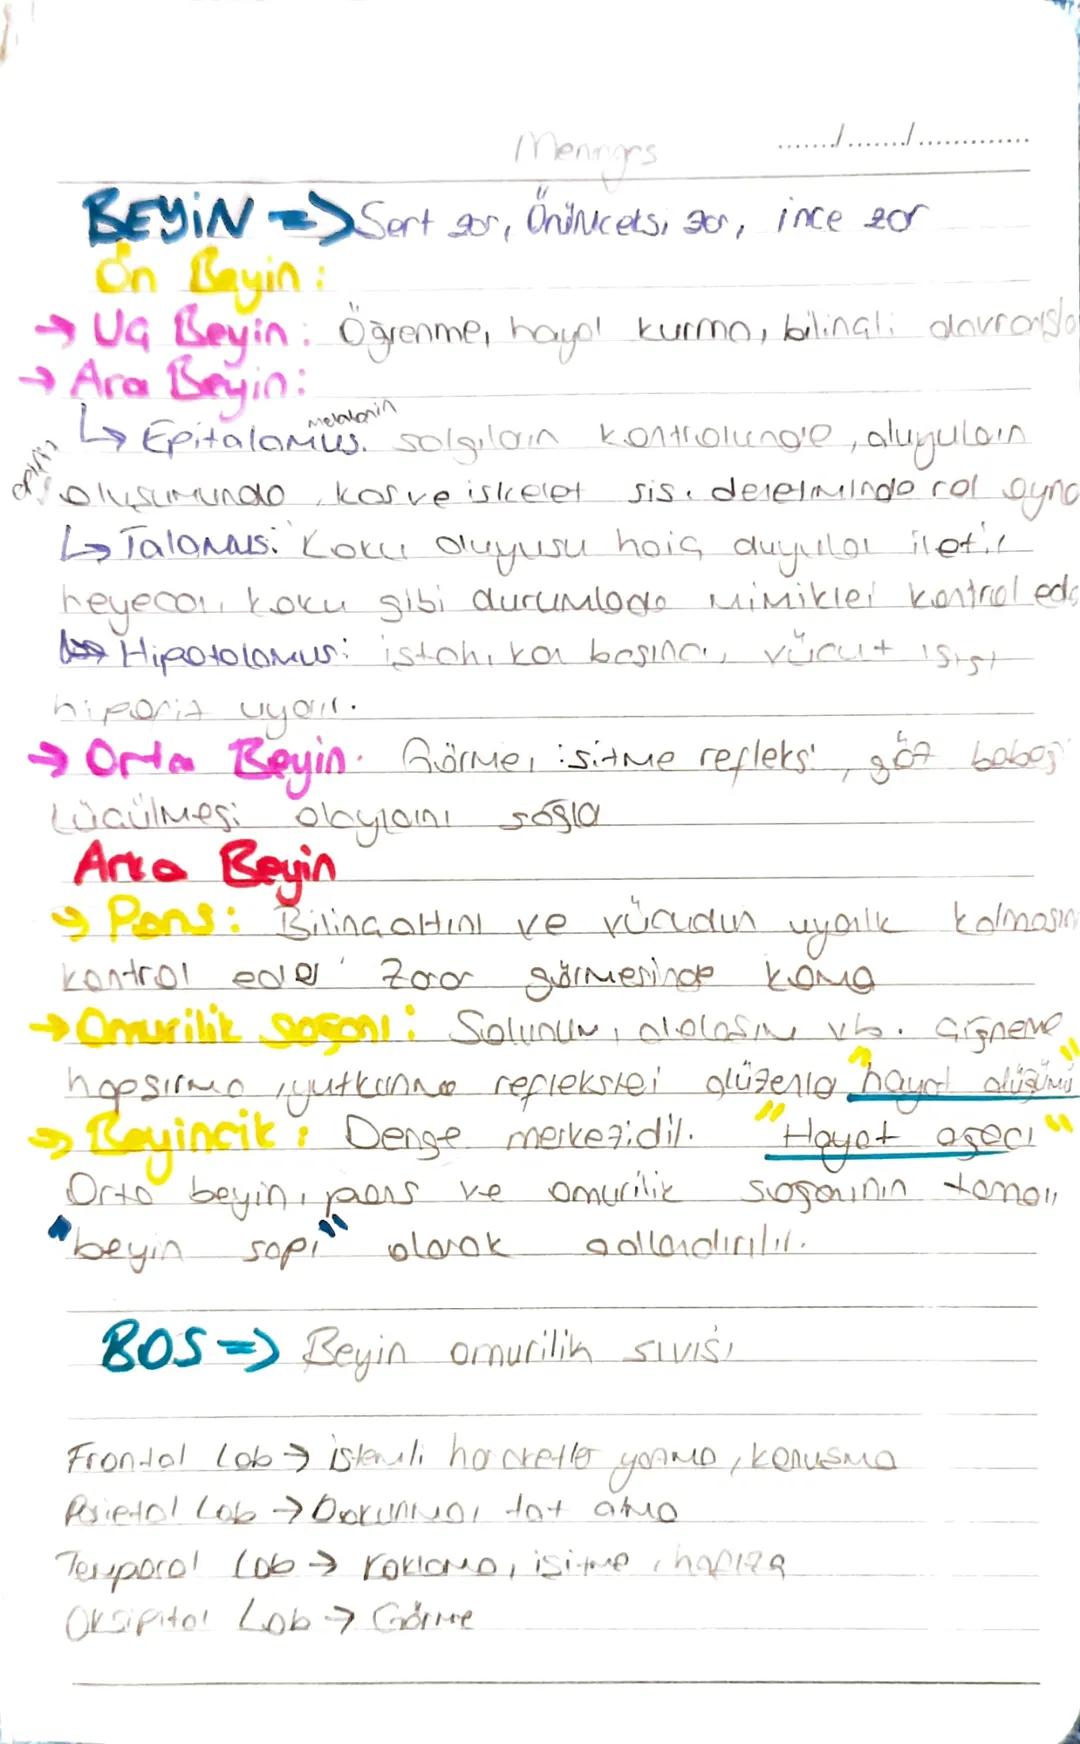 Menings
BEYİN => Sert zar, Örümceksi zar, ince zar
Ön Beyin:
→ Uç Beyin: Öğrenme, hayal kurma, bilinçli davranışla
→ Ara Beyin:
melatonin
↳ Epitalamus: salgıların kontrolünde, duyuların
oluşumunda, kas ve iskelet sis. denetiminde rol oyna
↳ Talamus: Koku duyusu hariç duyuları iletir
heyecan, koku gibi durumlarda mimikleri kontrol ede
↳ Hipotalamus: iştah, kan basıncı, vücut ısısı
hipofiz uyarır.
→ Orta Beyin: Görme, işitme refleksi, göz bebeği
küçülmesi olaylarını sağla
Arka Beyin
→ Pons: Bilinçaltını ve vücudun uyanık kalmasın
kontrol eder Zarar görmesinde koma
→ Omurilik soğanı: Solunum, dolaşım vb. Çiğneme
hapşırma, yutkunma refleksleri düzenle "hayat düğümü"
→ Beyincik: Denge merkezidir. "Hayat ağacı"
Orta beyin, pons ve omurilik soğanının tamamı
"beyin sapı" olarak adlandırılır.
BOS => Beyin omurilik sıvısı
Frontal Lob → istemli hareketler yapma, konuşma
Parietal Lob → Dokunma, tat alma
Temporal Lob → koklama, işitme, hafıza
Oksipital Lob → Görme